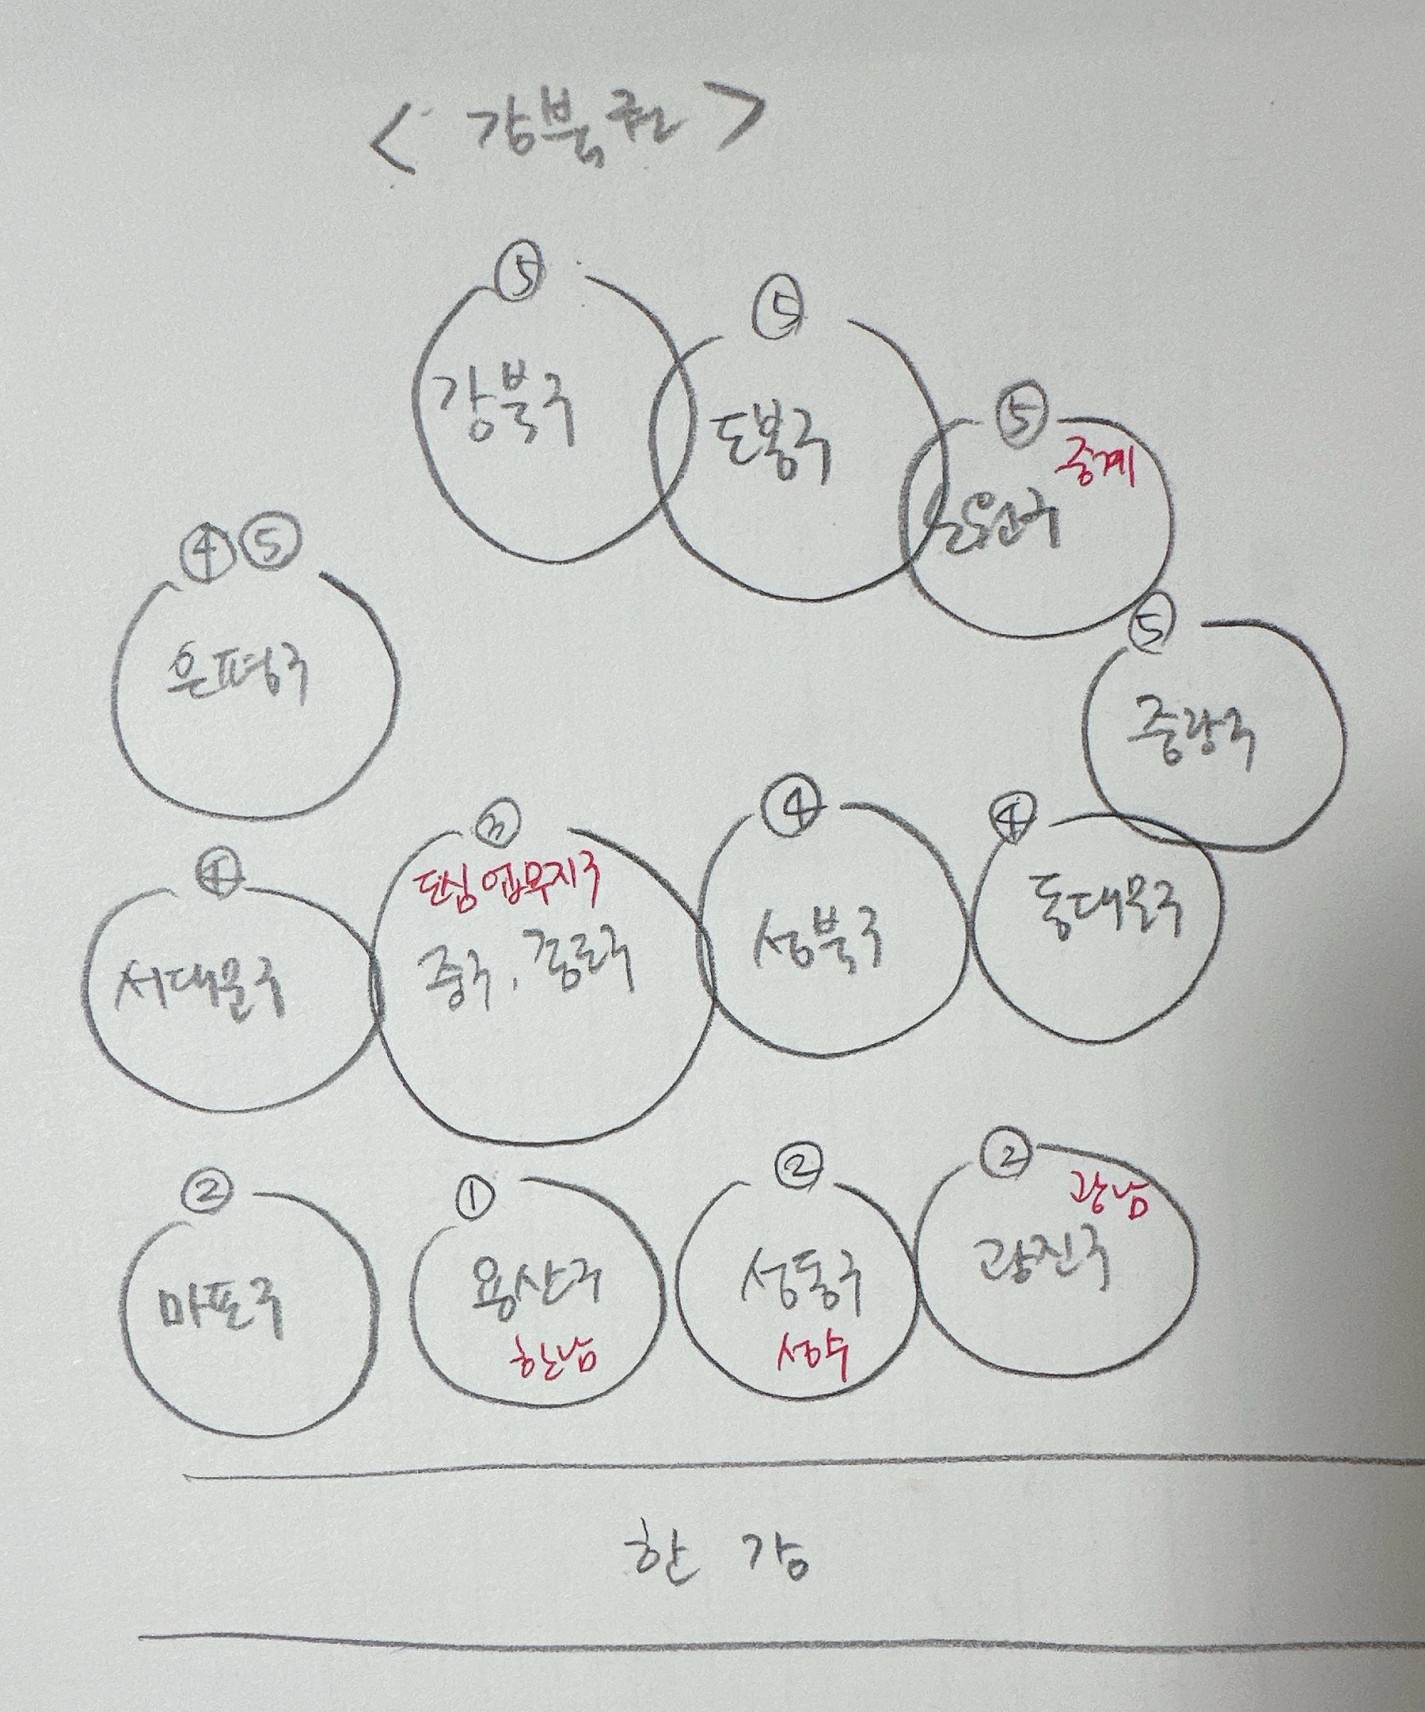 < 강북권 >
⑤
강북구
⑤
도봉구
⑤
중계
노원구
④ ⑤
은평구
⑤
중랑구
④
서대문구
③
도심업무지구
중구, 종로구
④
성북구
④
동대문구
②
마포구
①
용산구
한남
②
성동구
성수
②
광남
광진구
한강